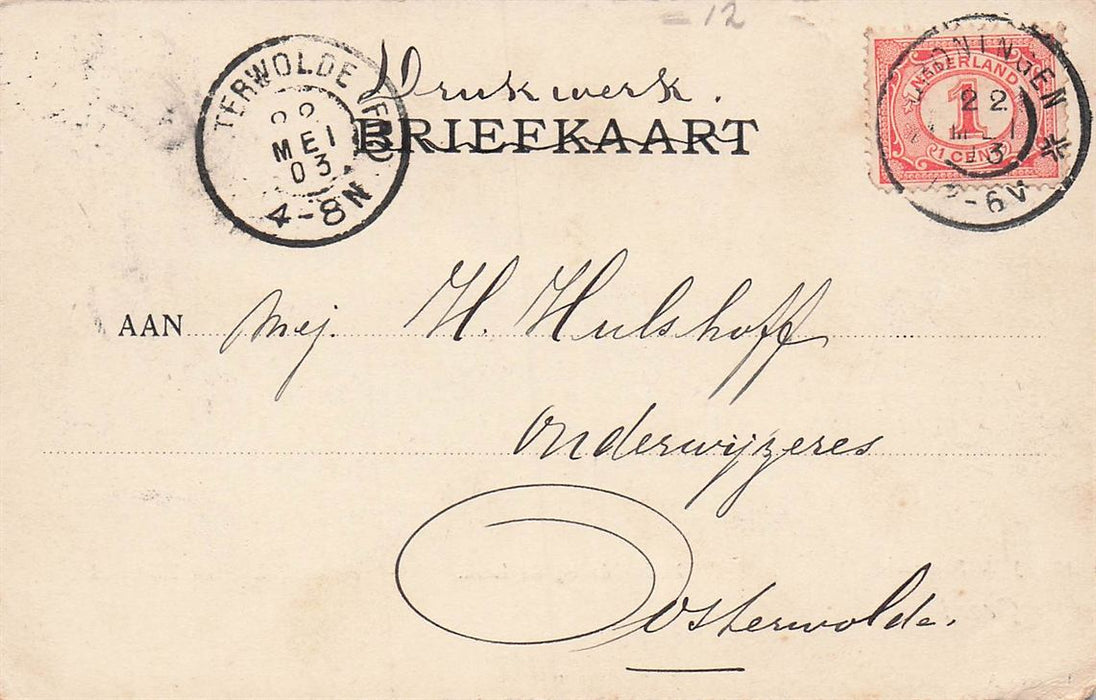 = 12
Drukwerk.
BRIEFKAART
TERWOLDE (FR)
22
MEI
03
4-8N
NINGEN
NEDERLAND
1
1 CENT
22
MEI
3
12-6V
AAN Mej. H. Hulshoff
Onderwijzeres
Oosterwolde.